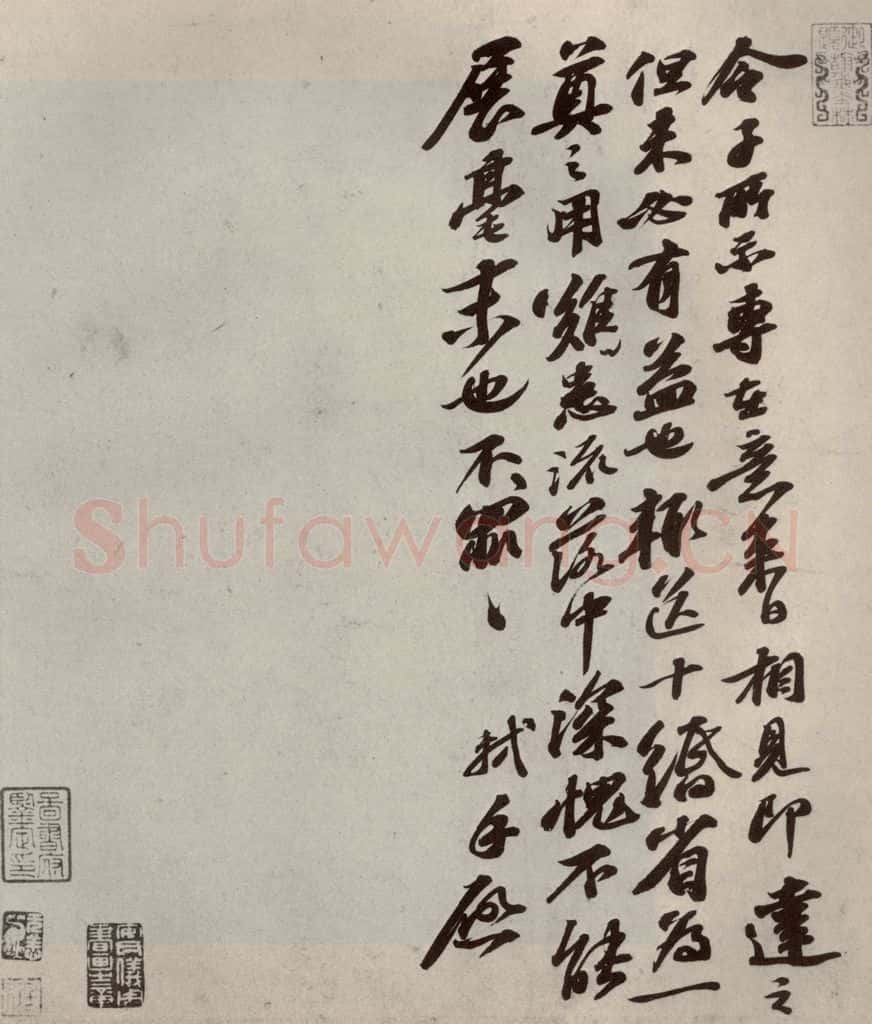 令子所示專在意來日相見即達之
但未必有益也輒送十緡省為一
奠之用難患流落中深愧不能
展毫末也不罪〻軾手啟
Shufawang.cn